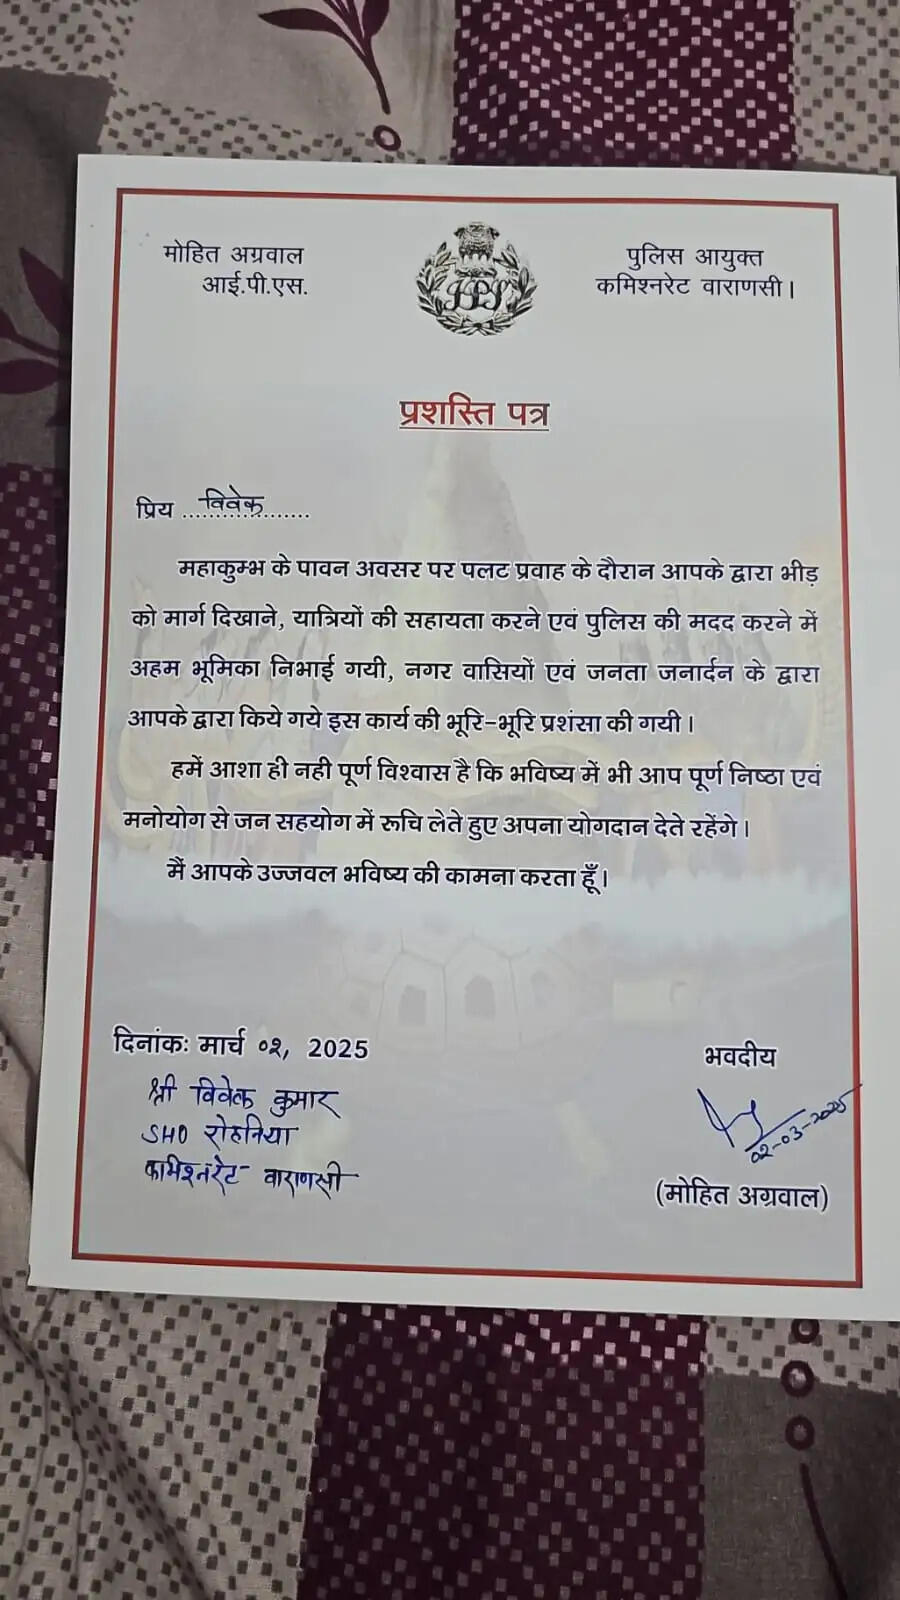 मोहित अग्रवाल
आई.पी.एस.
IPS
पुलिस आयुक्त
कमिश्नरेट वाराणसी।
प्रशस्ति पत्र
प्रिय ...विवेक.......
महाकुम्भ के पावन अवसर पर पलट प्रवाह के दौरान आपके द्वारा भीड़
को मार्ग दिखाने, यात्रियों की सहायता करने एवं पुलिस की मदद करने में
अहम भूमिका निभाई गयी, नगर वासियों एवं जनता जनार्दन के द्वारा
आपके द्वारा किये गये इस कार्य की भूरि-भूरि प्रशंसा की गयी।
हमें आशा ही नही पूर्ण विश्वास है कि भविष्य में भी आप पूर्ण निष्ठा एवं
मनोयोग से जन सहयोग में रूचि लेते हुए अपना योगदान देते रहेंगे।
मैं आपके उज्जवल भविष्य की कामना करता हूँ।
दिनांकः मार्च ०२, 2025
श्री विवेक कुमार
SHO रोहनिया
कमिश्नरेट वाराणसी
भवदीय
02-03-2025
(मोहित अग्रवाल)